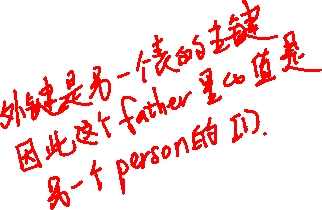 外键是另一个表的主键
因此这个father里的值是
另一个person的ID.